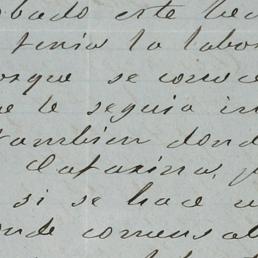 obado este he
tenia la labo
osque se conoce
ue le seguia in
tambien dond
Catarina, p
si se hace u
onde comensal